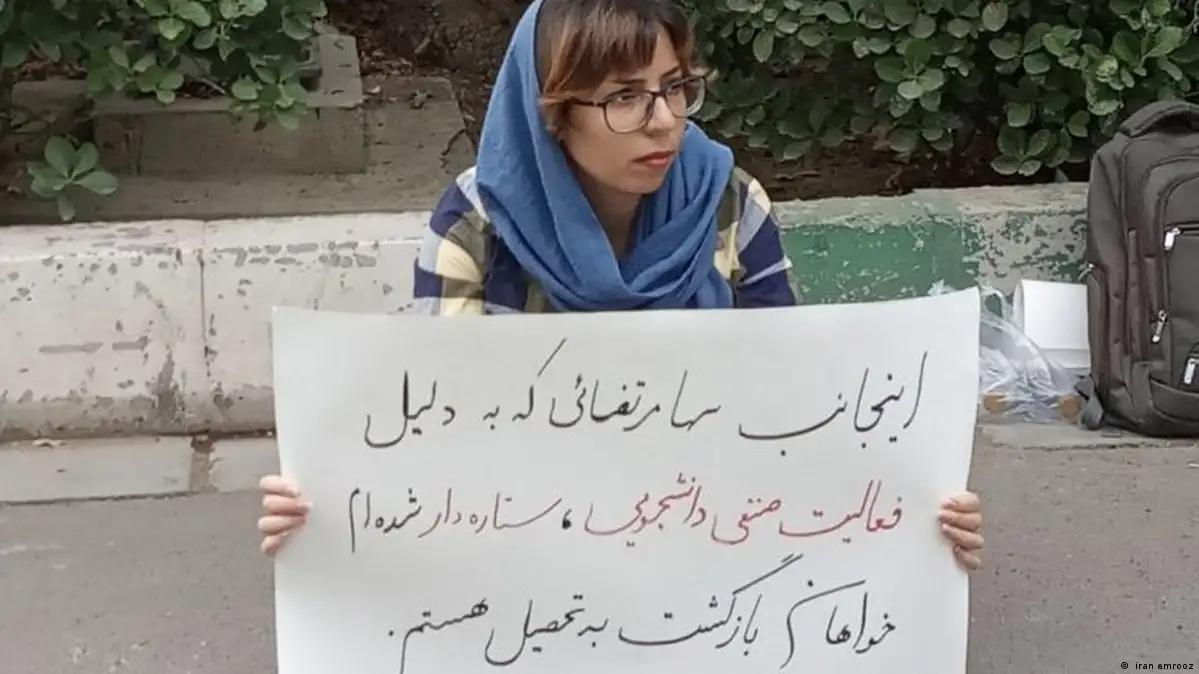 اینجانب سها مرتضائی که به دلیل
فعالیت صنفی دانشجویی، ستاره دار شده ام
خواهان بازگشت به تحصیل هستم.
© iran emrooz